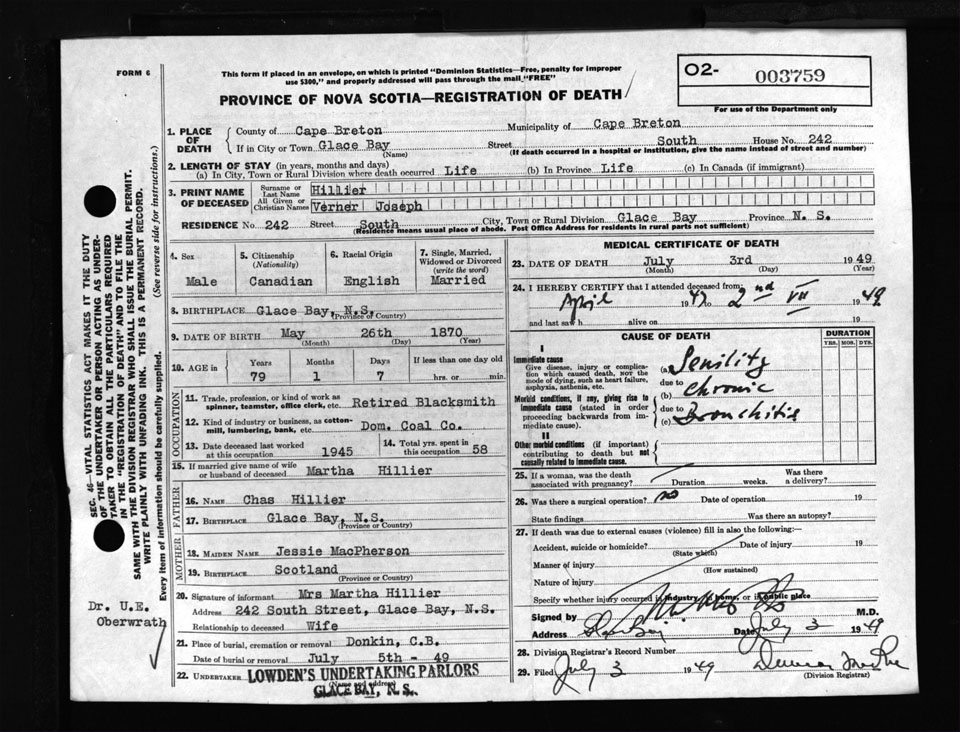 FORM 6
This form if placed in an envelope, on which is printed "Dominion Statistics—Free, penalty for improper
use $300," and properly addressed will pass through the mail "FREE"
PROVINCE OF NOVA SCOTIA—REGISTRATION OF DEATH
O2- 003759
For use of the Department only
1. PLACE OF DEATH
County of Cape Breton Municipality of Cape Breton
If in City or Town Glace Bay Street South House No. 242
(Name) (If death occurred in a hospital or institution, give the name instead of street and number)
2. LENGTH OF STAY (in years, months and days)
(a) In City, Town or Rural Division where death occurred Life (b) In Province Life (c) In Canada (if immigrant)
3. PRINT NAME OF DECEASED
Surname or Last Name Hillier
All Given or Christian Names Verner Joseph
RESIDENCE No. 242 Street South City, Town or Rural Division Glace Bay Province N. S.
(Residence means usual place of abode. Post Office Address for residents in rural parts not sufficient)
4. Sex
Male
5. Citizenship
(Nationality)
Canadian
6. Racial Origin
English
7. Single, Married, Widowed or Divorced
(write the word)
Married
8. BIRTHPLACE Glace Bay, N.S.
(Province or County)
9. DATE OF BIRTH May 26th 1870
(Month) (Day) (Year)
10. AGE in
Years Months Days If less than one day old
79 1 7 hrs. or min.
OCCUPATION
11. Trade, profession, or kind of work as
spinner, teamster, office clerk, etc. Retired Blacksmith
12. Kind of industry or business, as cotton-
mill, lumbering, bank, etc. Dom. Coal Co.
13. Date deceased last worked
at this occupation 1945
14. Total yrs. spent in
this occupation 58
15. If married give name of wife
or husband of deceased Martha Hillier
FATHER
16. NAME Chas Hillier
17. BIRTHPLACE Glace Bay, N.S.
(Province or Country)
MOTHER
18. MAIDEN NAME Jessie MacPherson
19. BIRTHPLACE Scotland
(Province or Country)
20. Signature of informant Mrs Martha Hillier
Address 242 South Street, Glace Bay, N.S.
Relationship to deceased Wife
21. Place of burial, cremation or removal Donkin, C.B.
Date of burial or removal July 5th - 49
22. UNDERTAKER LOWDEN'S UNDERTAKING PARLORS
(Name and address)
GLACE BAY, N. S.
MEDICAL CERTIFICATE OF DEATH
23. DATE OF DEATH July 3rd 1949
(Month) (Day) (Year)
24. I HEREBY CERTIFY that I attended deceased from:
April 19 to 2nd VII 1949
and last saw h alive on 19
CAUSE OF DEATH
DURATION
YRS. MOS. DYS.
I
Immediate cause
Give disease, injury or complica-
tion which caused death, NOT the
mode of dying, such as heart failure,
asphyxia, asthenia, etc.
(a) Senility
due to
Morbid conditions, if any, giving rise to
immediate cause (stated in order
proceeding backwards from im-
mediate cause).
(b) Chronic
due to
(c) Bronchitis
II
Other morbid conditions (if important)
contributing to death but not
causally related to immediate cause.
25. If a woman, was the death
associated with pregnancy? Duration weeks. Was there
a delivery?
26. Was there a surgical operation? no Date of operation 19
State findings Was there an autopsy?
27. If death was due to external causes (violence) fill in also the following:—
Accident, suicide or homicide? Date of injury 19
(State which)
Manner of injury
(How sustained)
Nature of injury
Specify whether injury occurred in industry, in home, or in public place
Signed by M.D.
Address Glace Bay Date July 3 1949
28. Division Registrar's Record Number
29. Filed July 3 1949
(Division Registrar)
SEC. 46—VITAL STATISTICS ACT MAKES IT THE DUTY
OF THE UNDERTAKER OR PERSON ACTING AS UNDER-
TAKER TO OBTAIN ALL THE PARTICULARS REQUIRED
IN THE "REGISTRATION OF DEATH" AND TO FILE THE
SAME WITH THE DIVISION REGISTRAR WHO SHALL ISSUE THE BURIAL PERMIT.
WRITE PLAINLY WITH UNFADING INK. THIS IS A PERMANENT RECORD.
Every item of information should be carefully supplied. (See reverse side for instructions.)
Dr. U.E.
Oberwrath